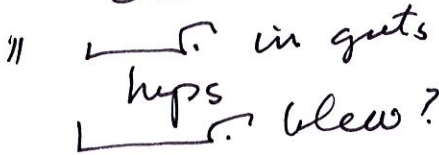 " in guts
hips
blew?